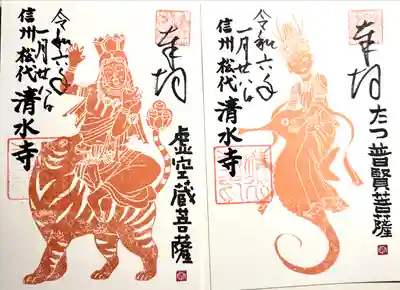 奉拝
虚空蔵菩薩
令和六年
一月廿八日
信州松代
清水寺
奉拝
たつ普賢菩薩
令和六年
一月廿八日
信州松代
清水寺